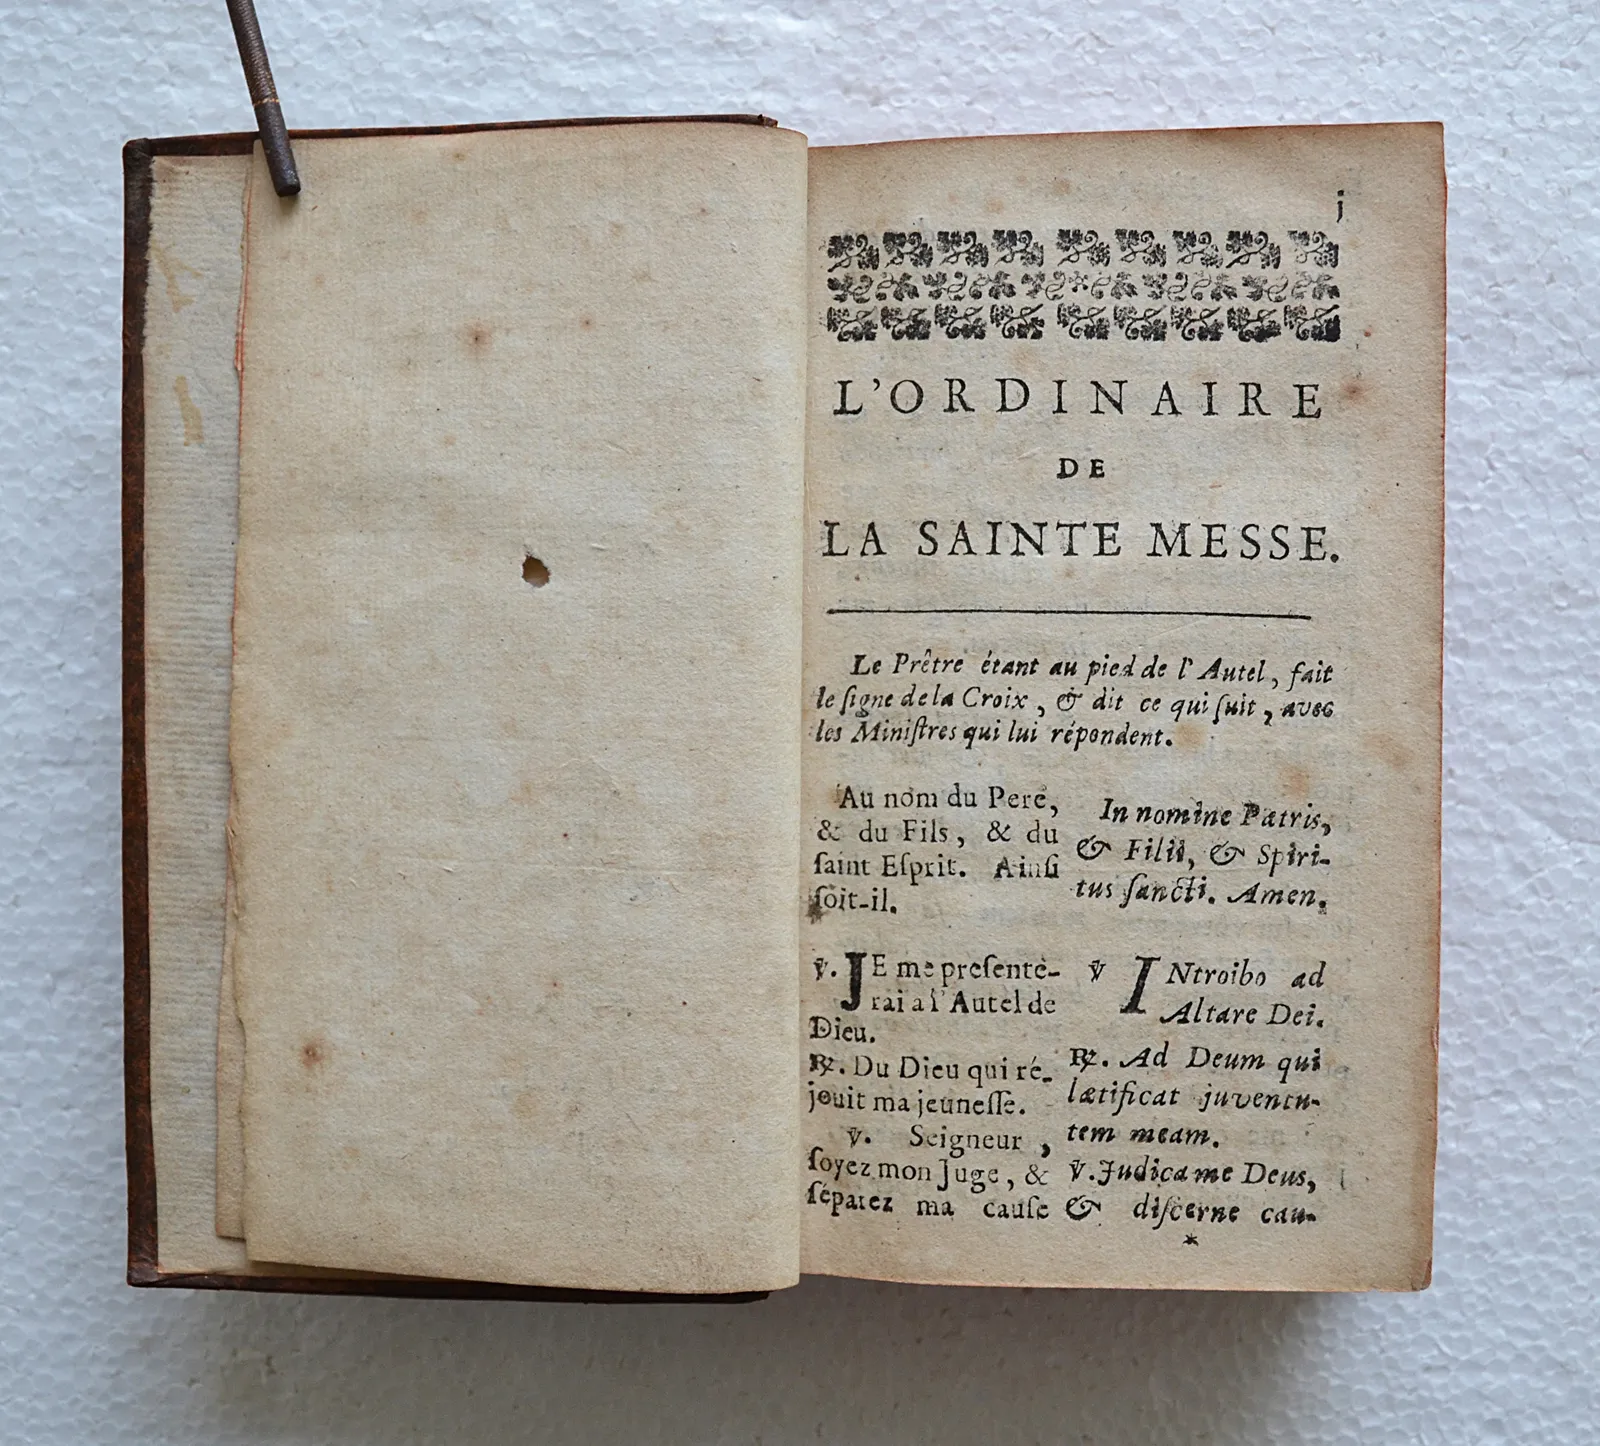 j
L'ORDINAIRE
DE
LA SAINTE MESSE.
Le Prêtre étant au pied de l'Autel, fait
le ſigne de la Croix, & dit ce qui ſuit, avec
les Miniſtres qui lui répondent.
Au nom du Pere,
& du Fils, & du
ſaint Eſprit. Ainſi
ſoit-il.
℣. JE me preſente-
rai a l'Autel de
Dieu.
℟. Du Dieu qui ré-
jouit ma jeuneſſe.
℣. Seigneur,
ſoyez mon Juge, &
ſéparez ma cauſe
In nomine Patris,
& Filii, & Spiri-
tus ſancti. Amen.
℣ INtroibo ad
Altare Dei.
℟. Ad Deum qui
lætificat juventu-
tem meam.
℣. Judica me Deus,
& diſcerne cau-
*